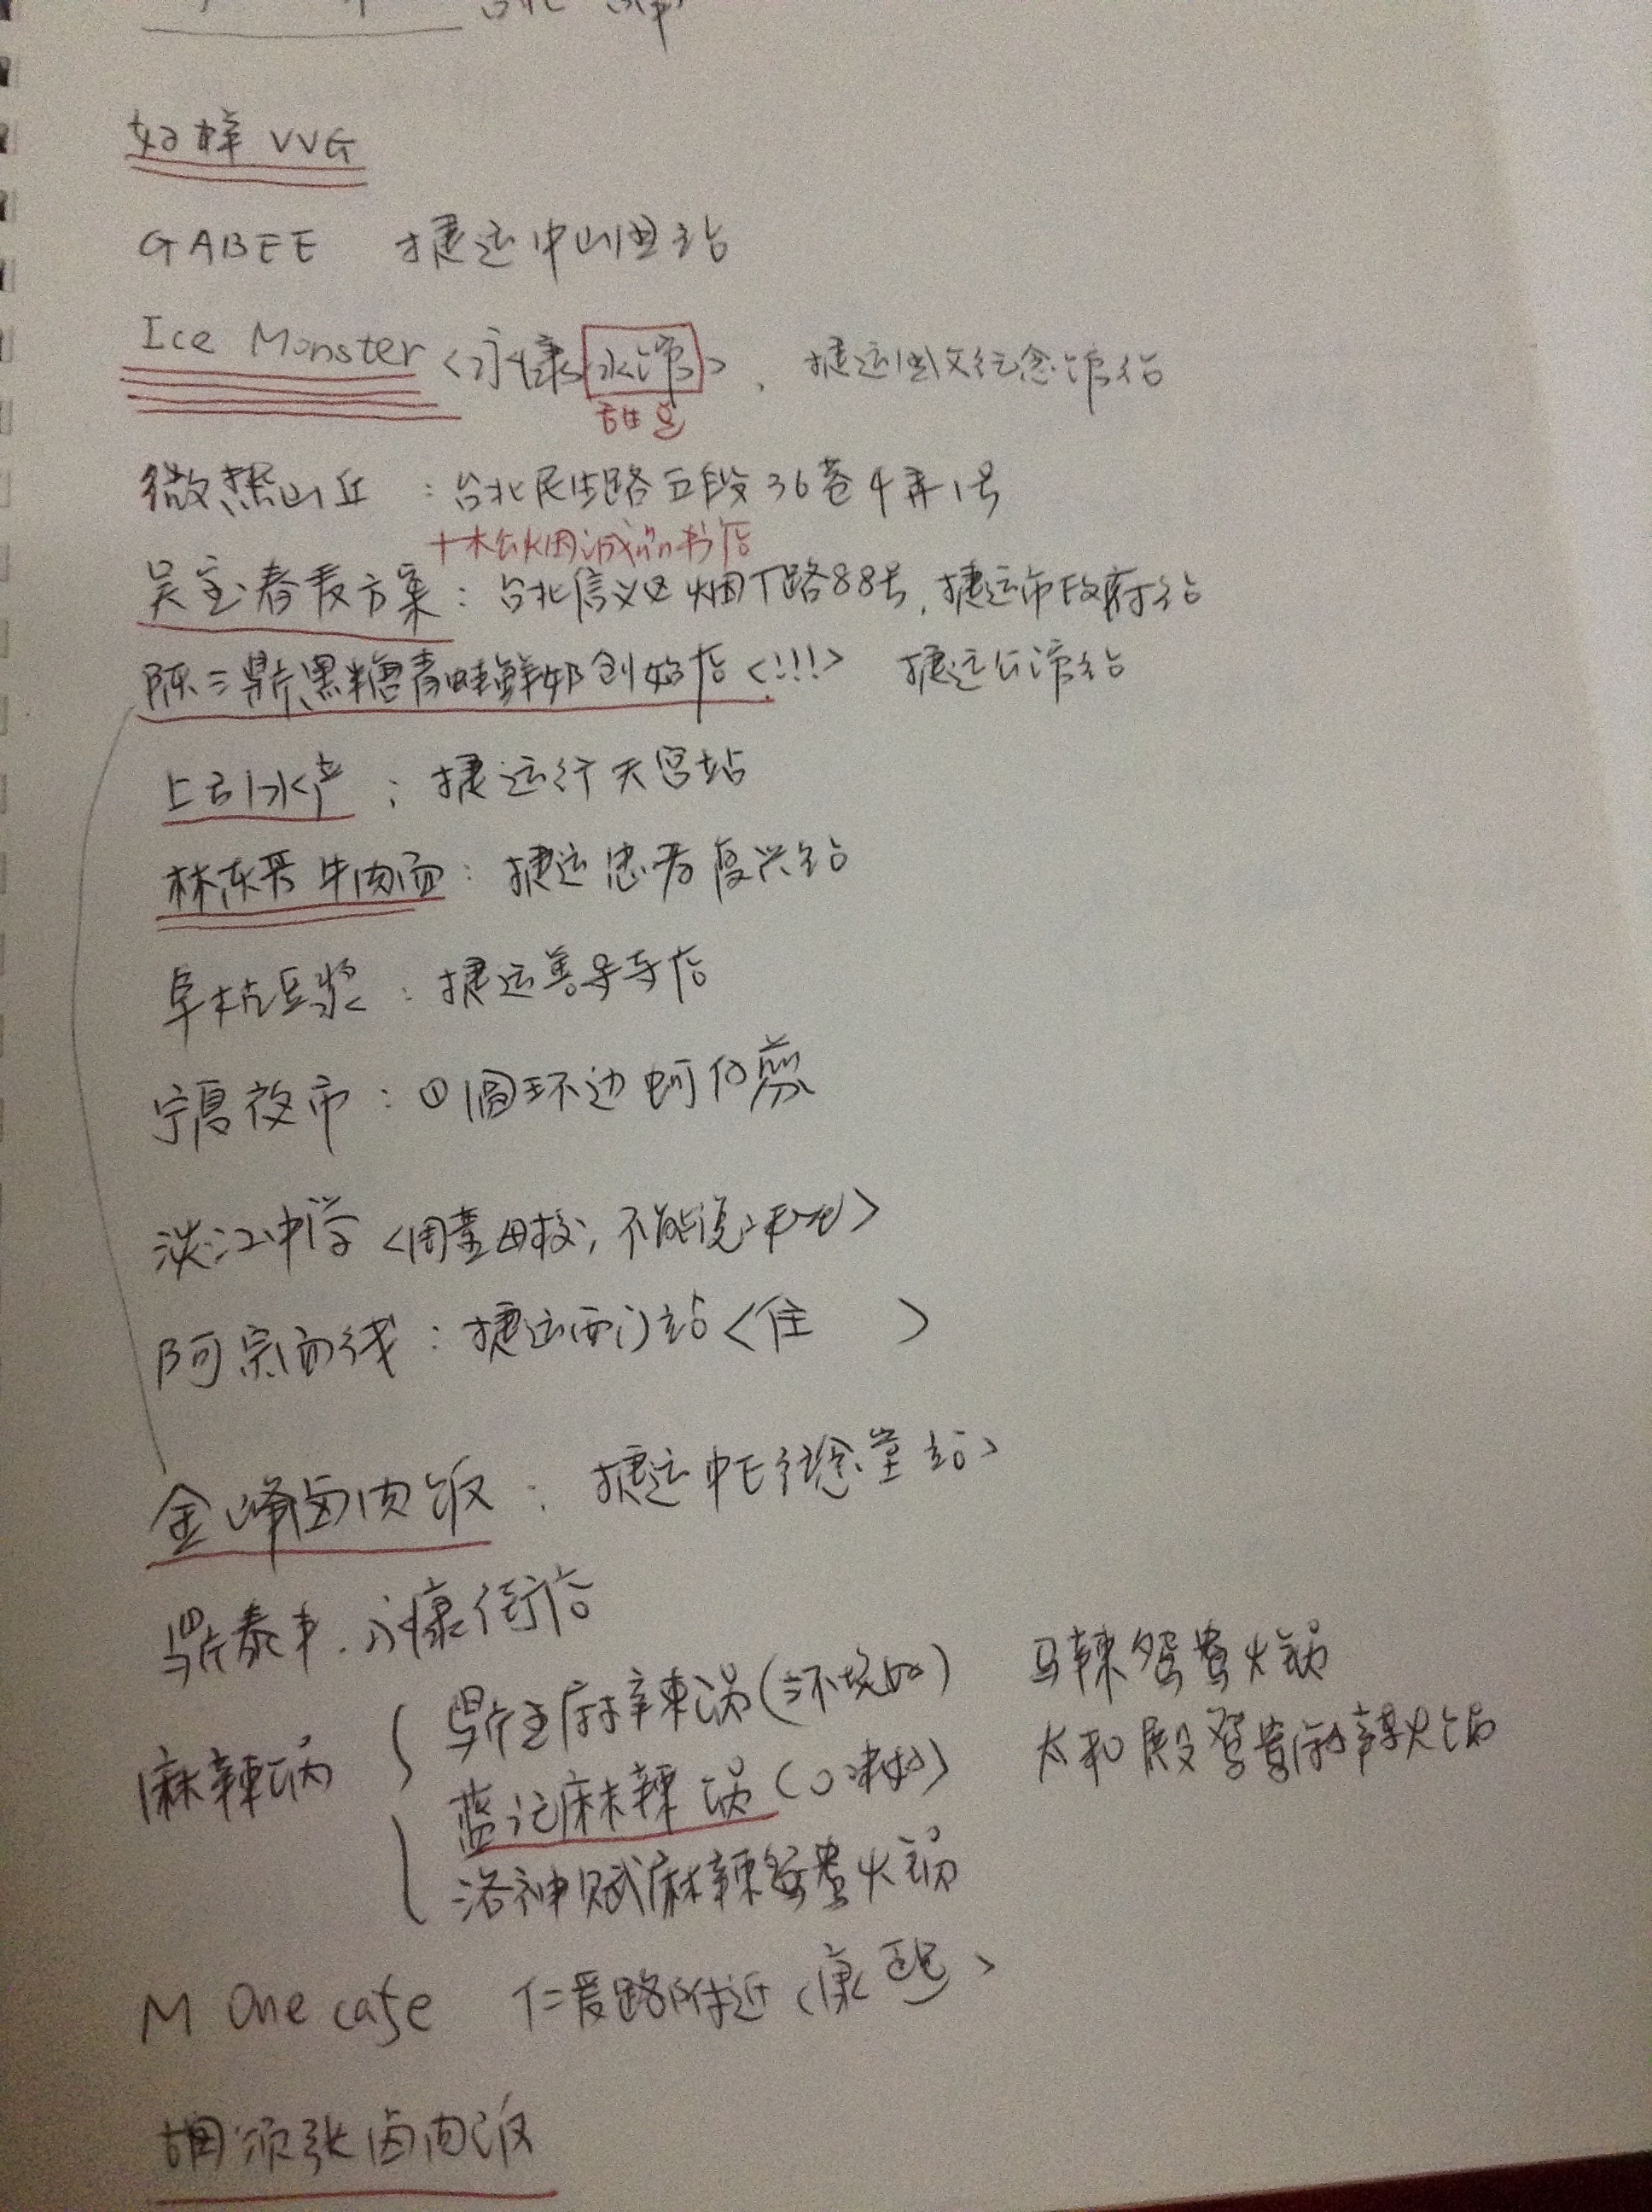 台北
好样 VVG
GABEE 捷运中山国站
Ice Monster <永康冰馆>, 捷运国父纪念馆站
甜品
微热山丘 : 台北民生路五段36巷4弄1号
+松烟诚品书店
吴宝春麦方案 : 台北信义区烟厂路88号, 捷运市政府站
陈三鼎黑糖青蛙鲜奶创始店<!!!> 捷运公馆站
上引水产 : 捷运行天宫站
林东芳牛肉面 : 捷运忠孝复兴站
阜杭豆浆 : 捷运善导寺店
宁夏夜市 : ①圆环边蚵仔煎
淡江中学<周董母校, 不能说的>
阿宗面线 : 捷运西门站<住 >
金峰卤肉饭 : 捷运中正纪念堂站>
鼎泰丰. 永康街店
麻辣锅
鼎王麻辣锅(环境好) 马辣鸳鸯火锅
蓝记麻辣锅(口味好) 太和殿鸳鸯麻辣火锅
洛神赋麻辣鸳鸯火锅
M One cafe 仁爱路附近<康熙>
胡须张卤肉饭